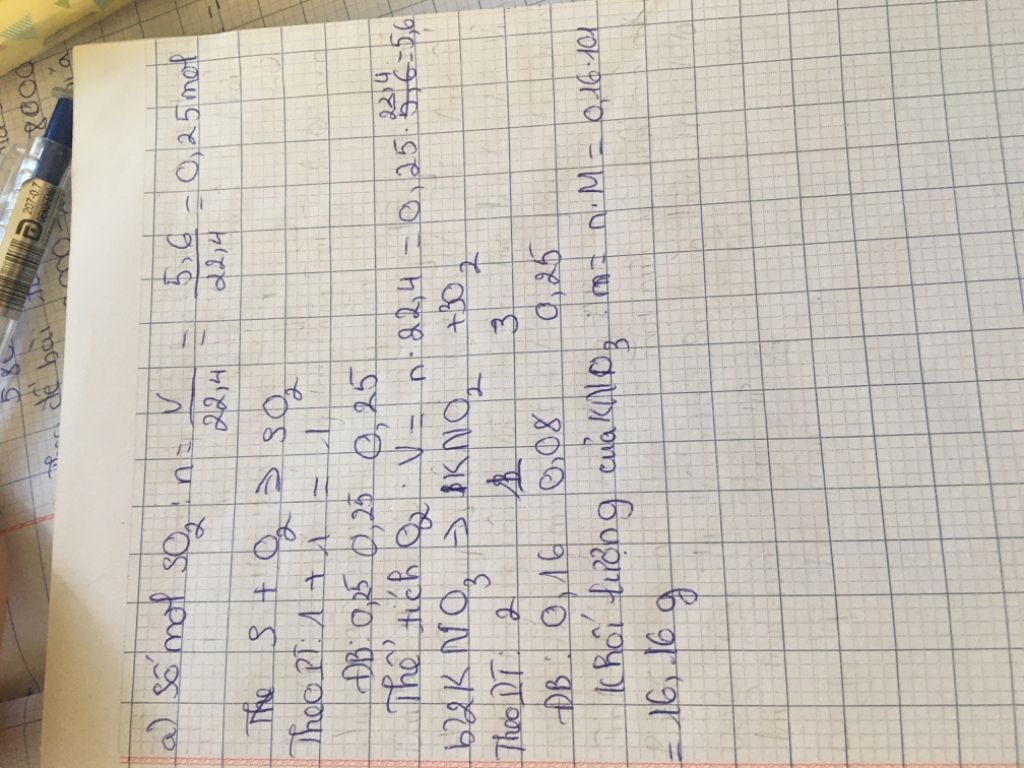 a) Số mol SO2 : n = V/22,4 = 5,6/22,4 = 0,25 mol
S + O2 => SO2
Theo PT: 1 + 1 = 1
ĐB: 0,25 0,25 0,25
Thể tích O2 : V = n . 22,4 = 0,25 . 22,4 = 5,6
b) 2KNO3 => KNO2 + 3O2
Theo PT: 2 3
ĐB: 0,16 0,08 0,25
Khối lượng của KNO3 : m = n . M = 0,16 . 101
= 16,16 g
đề bài
207-0.7